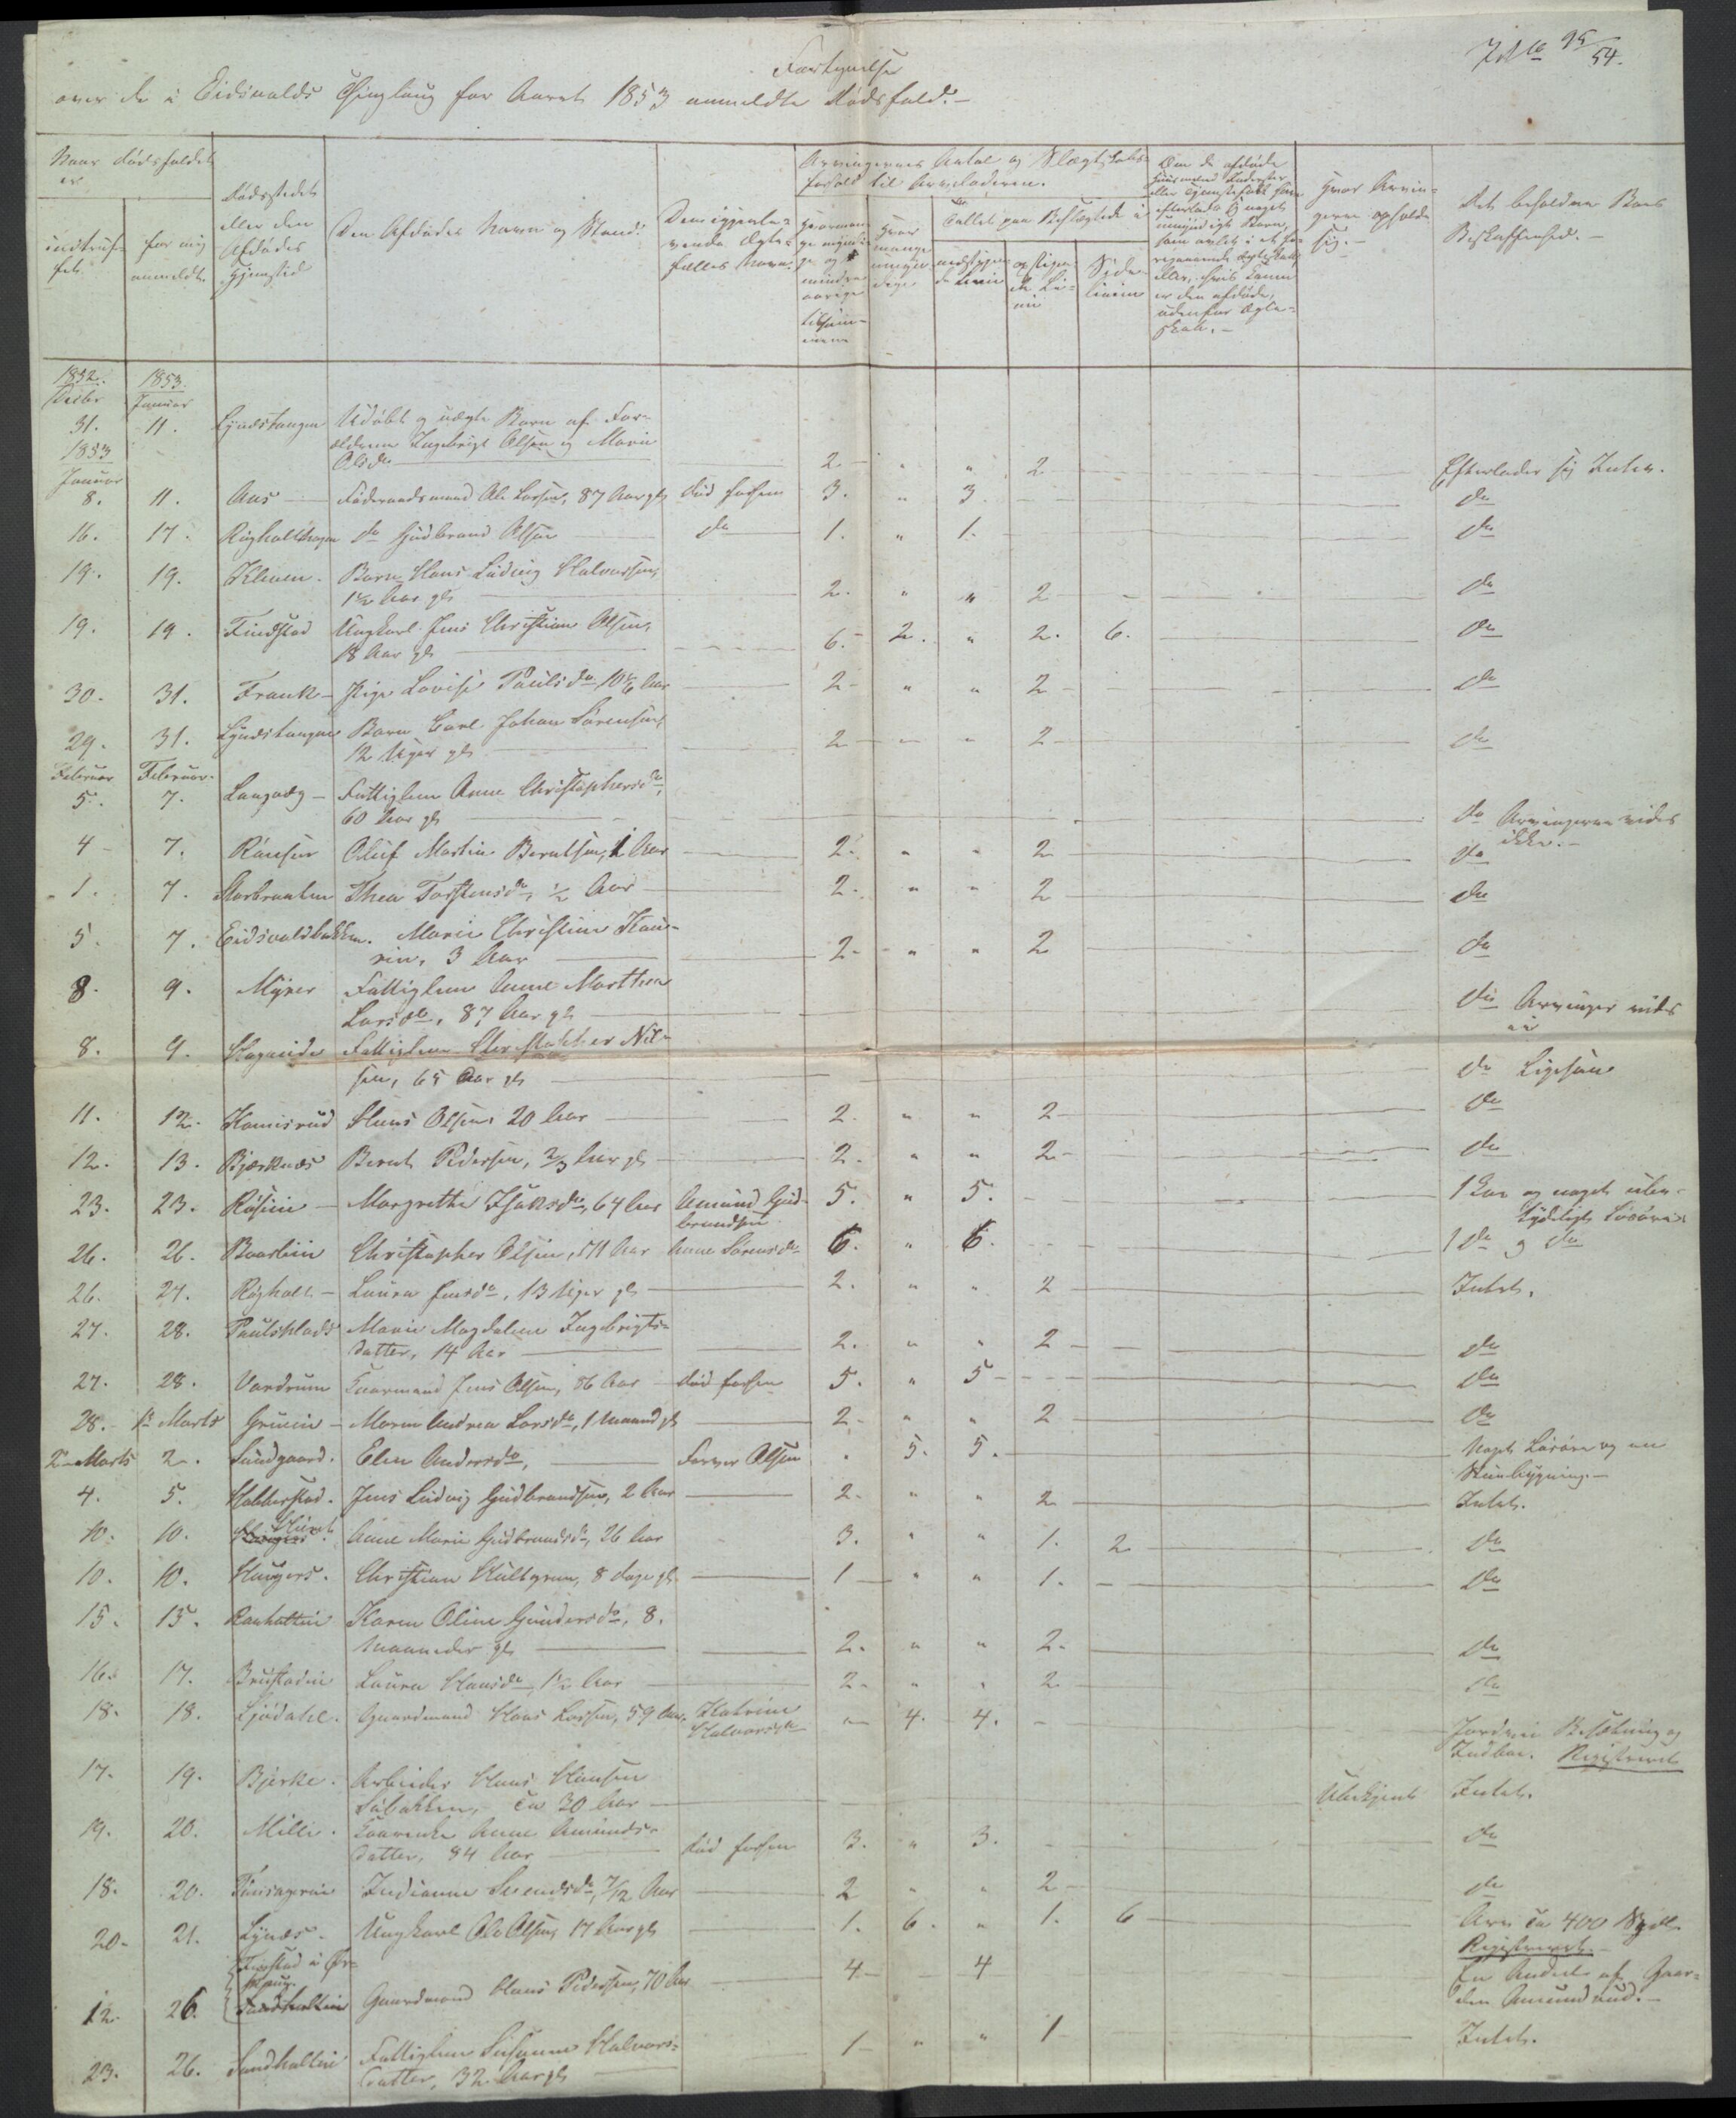 Fortegnelse
over de i Eidsvolds Thinglaug for Aaret 1853 anmeldte Dødsfald.-
95/54.
Naar Dødsfaldet er
indtruffet
for mig anmeldt.
Dødsstedet eller den Afdødes Hjemsted
Den Afdødes Navn og Stand.
Den igjenlevende Ægtefælles Navn.
Arvingernes Antal og Slægtskabsforhold til Arveladeren.
hvormange myndige og mindreaarige tilsammen
hvor mange umyndige
Tallet paa Beslægtede i
nedstigende Linie
opstigende Linie
Sidelinien
Om de afdøde Huusmænd Inderster eller Tjenestefolk have efterladt sig noget umyndigt Barn, som avlet i et foregaaende Ægteskab, eller, hvis Konen er den afdøde, udenfor Ægteskab.-
Hvor Arvingerne opholde sig.-
Det beholdne Boes Beskaffenhed.-
1852. Decbr 1853. Januar
31. 11. Lynæstangen Udøbt og uægte Barn af Forældrene Ingebrigt Olsen og Marie Olsdr 2 " " 2 Efterlader sig Intet.
1853 Januar
8. 11. Aas Føderaadsmand Ole Larsen, 87 Aar gl død forhen 3. " 3. do
16. 17. Røgholthagen do Gudbrand Olsen do 1. " 1. do
19. 19. Kleven. Barn Hans Ludvig Halvorsen, 1½ Aar gl 2. " " 2 do
19. 19. Findstad Ungkarl Jens Christian Olsen, 18 Aar gl 6. 2. " 2. 6. do
30. 31. Frank Pige Lovise Paulsdr, 10 1/6 Aar 2 " " 2 do
29. 31. Lynæstangen Barn Carl Johan Sørensen, 12 Uger gl 2 " " 2 do
Februar Februar.
5. 7. Langvæg Fattiglem Anne Christophersdr, 60 Aar gl do Arvingerne vides ikke.-
4 7. Rønsen Oluf Martin Berntsen, 1 Aar 2. " " 2 do
1. 7. Storbraaten Thea Torstensdr, ½ Aar 2. " " 2 do
5. 7. Eidsvoldbakken. Marie Christine Haurin, 3 Aar 2 " " 2 do
8. 9. Myrer Fattiglem Anne Marthea Larsdr, 87 Aar gl do Arvinger vides ei
8. 9. Hagaeide Fattiglem Christopher Nilsen, 65 Aar gl do Ligesaa
11. 12. Hanisrud Hans Olsen 20 Aar 2. " " 2 do
12. 13. Bjørknæs Bernt Pedersen, 2/3 Aar gl 2. " " 2 do
23. 23. Røsine Margrethe Isaksdr, 64 Aar Amund Gudbrandsen 5. " 5. 1 Koe og noget ubetydeligt Løsøre.
26. 26. Baarlien Christopher Olsen, 51 Aar Anne Larsdr 6. " 6. 1 do og do
26. 27. Røgholt Laura Jensdr, 13 Uger gl 2. " " 2 Intet.
27. 28. Paulsplads Marie Magdalene Ingebrigtsdatter, 14 Aar 2. " " 2 do
27. 28. Vardrum Kaarmand Jens Olsen, 86 Aar død forhen 5. " 5 do
28. 1 Marts Gruien Maren Andrea Larsdr, 1 Maaned gl 2 " " 2 do
2 Marts 2. Sundgaard. Elen Andersdr, Farver Olsen . 5. 5. Noget Løsøre og en Stuebygning.-
4. 5. Habberstad. Jens Ludvig Gudbrandsen, 2 Aar 2. " " 2 Intet.
10. 10. Anne Marie Gudbrandsdr, 26 Aar 3. " " 1. 2 do
10. 10. Haugers. Christian Hultgren, 8 Dage gl. 1 " " 1. do
15. 15. Ranholteie Karen Oline Gundersdr, 8. Maaneder gl 2. " " 2. do
16. 17. Brustadeie Laura Hansdr, 1½ Aar 2. " " 2 do
18. 18. Ljødahl. Gaardmand Hans Larsen, 59 Aar. Kathrine Halvorsdr " 4. 4. Jordeie Besætning og Indboe. Registreret
17. 19. Bjerke. Arbeider Hans Hansen Lübakken, ca 30 Aar Ubekjendt Intet.
19. 20. Milli. Kaarenke Anne Amundsdatter, 84 Aar død forhen 3. " 3. do
18. 20. Tønsagereie Indianne Svendsdr, 7/12 Aar 2 " " 2 do
20. 21. Lynæs. Ungkarl Ole Olsen, 17 Aar gl 1. 6. " 1. 6 Arv ca 400 Spdl. Registreret.-
12. 26. Sandholteie Gaardmand Hans Pedersen, 70 Aar 4 4 En Andeel af Gaarden Amundrud.-
23. 26. Sandholteie Fattiglem Susanne Halvorsdatter, 32 Aar gl 1 " " 1 Intet.